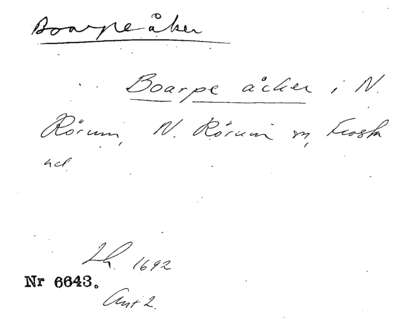 Boarpeåker
Boarpe åcker i N.
Rörum, N. Rörum sn, Frosta
hd.
Lh. 1692
Nr 6643.
Ant 2.